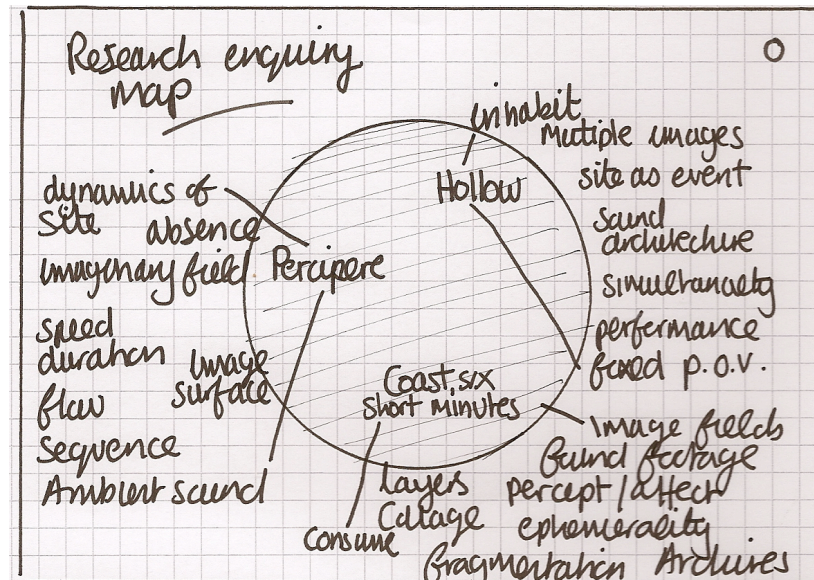 Research enquiry
map
inhabit
Multiple images
site as event
Hollow
sound
architechure
simultanaety
performance
fixed p.o.v.
dynamics of
site
absence
imagenary field
Percipere
speed
duration
image
surface
flow
sequence
Ambient sound
Coast, six
short minutes
image fields
found footage
percept/affect
ephemerality
fragmentation Archives
Layers
Collage
consume